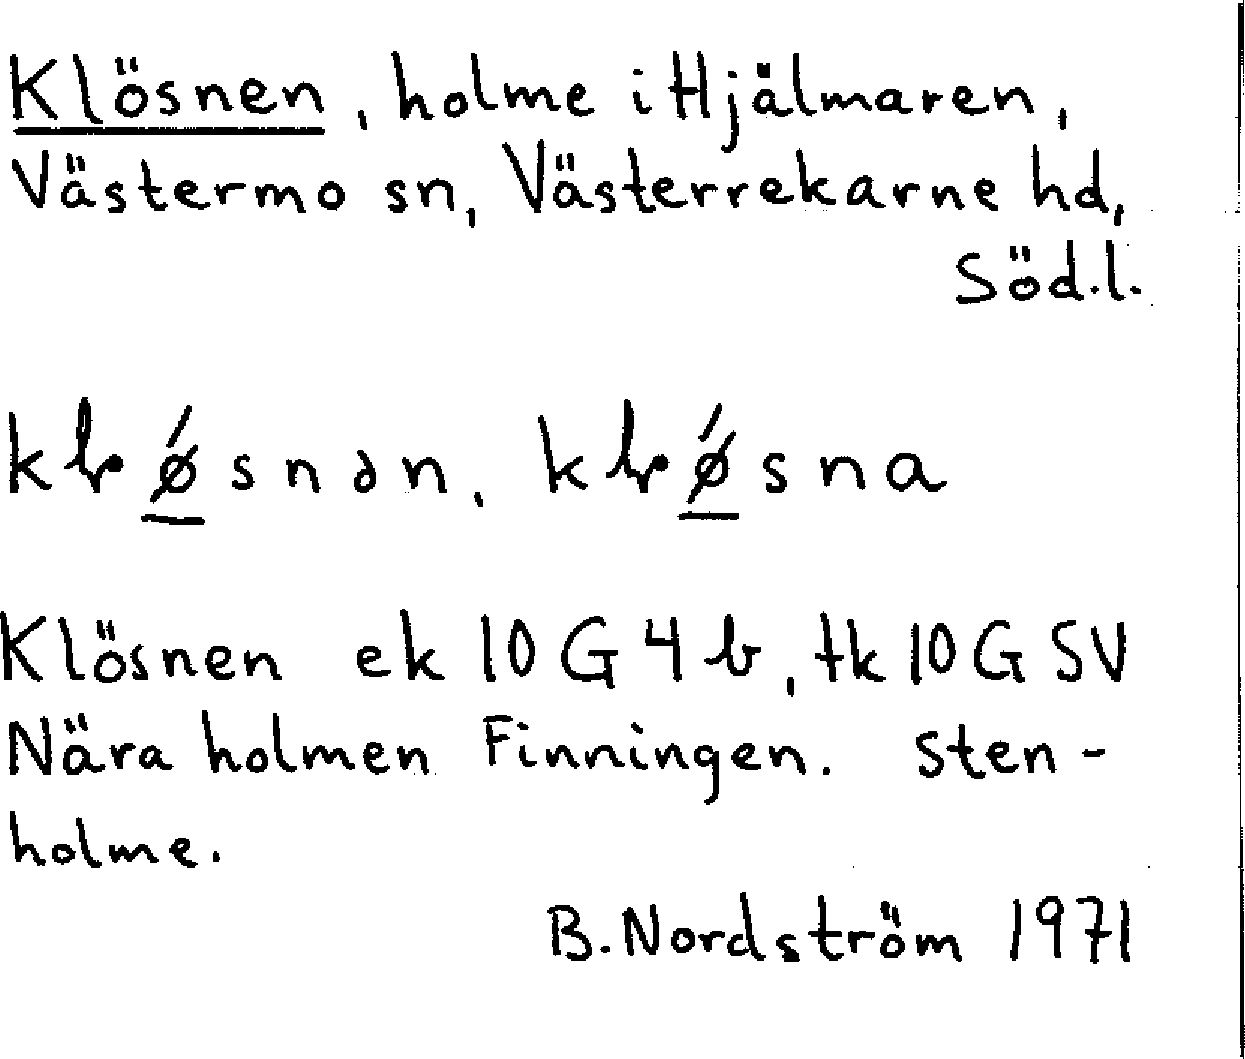 Klösnen, holme i Hjälmaren,
Västermo sn, Västerrekarne hd,
Söd.l.
kƚǿ̱snən, kƚǿ̱sna
Klösnen ek 10 G 4 b, tk 10 G SV
Nära holmen Finningen. Sten-
holme.
B. Nordström 1971